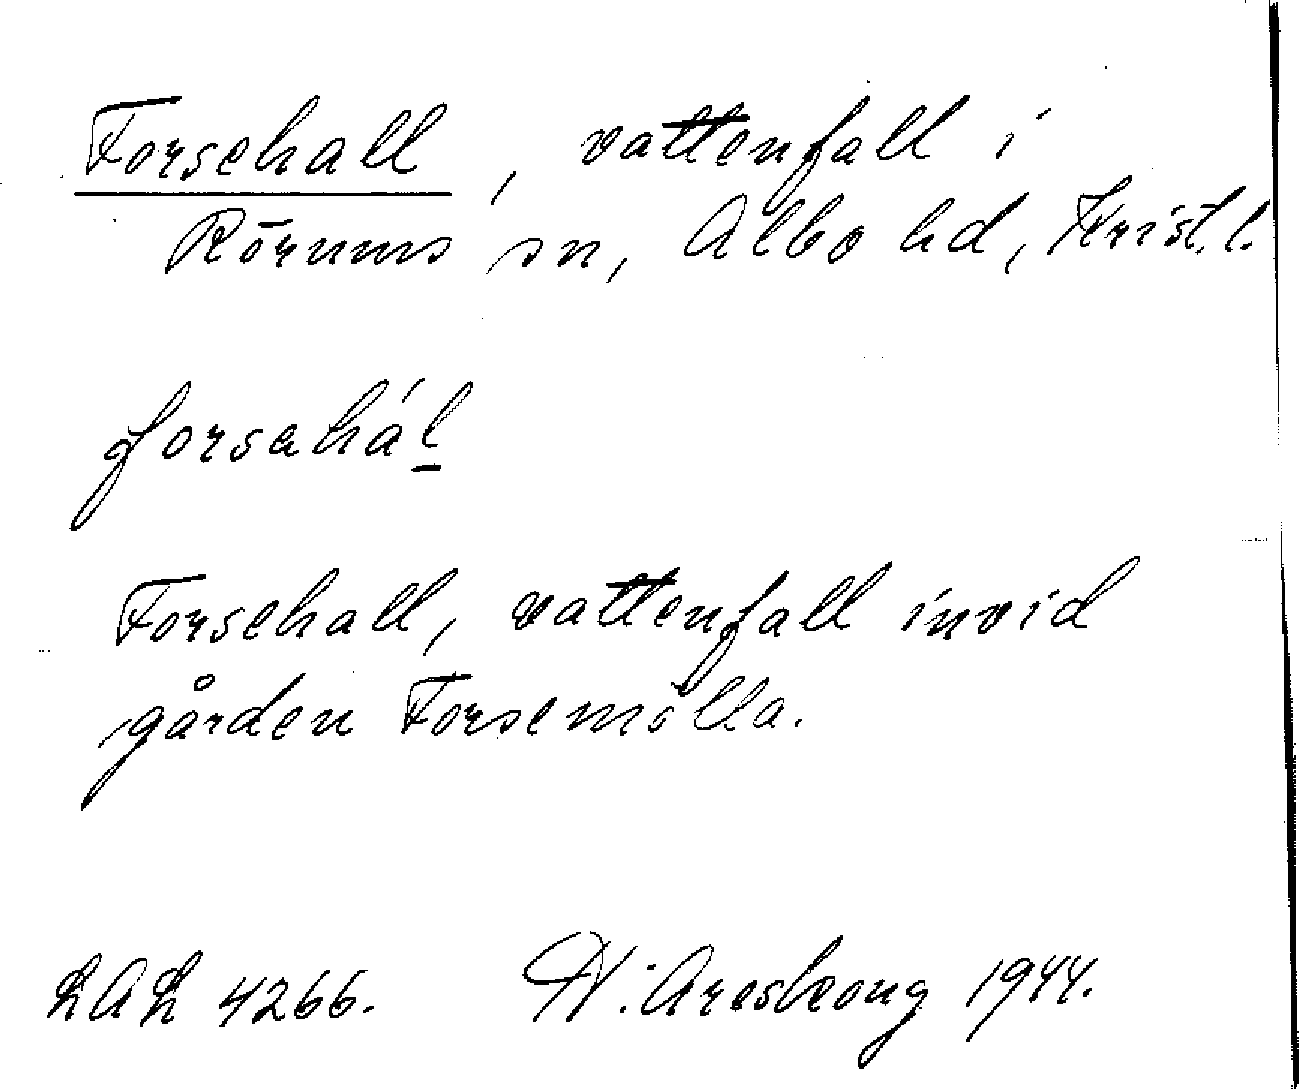 Forsehall, vattenfall i
Rörums sn, Albo hd, Krist. l.
forsahál
Forsehall, vattenfall invid
gården Forsemölla.
LAL 4266. N. Areskoug 1944.